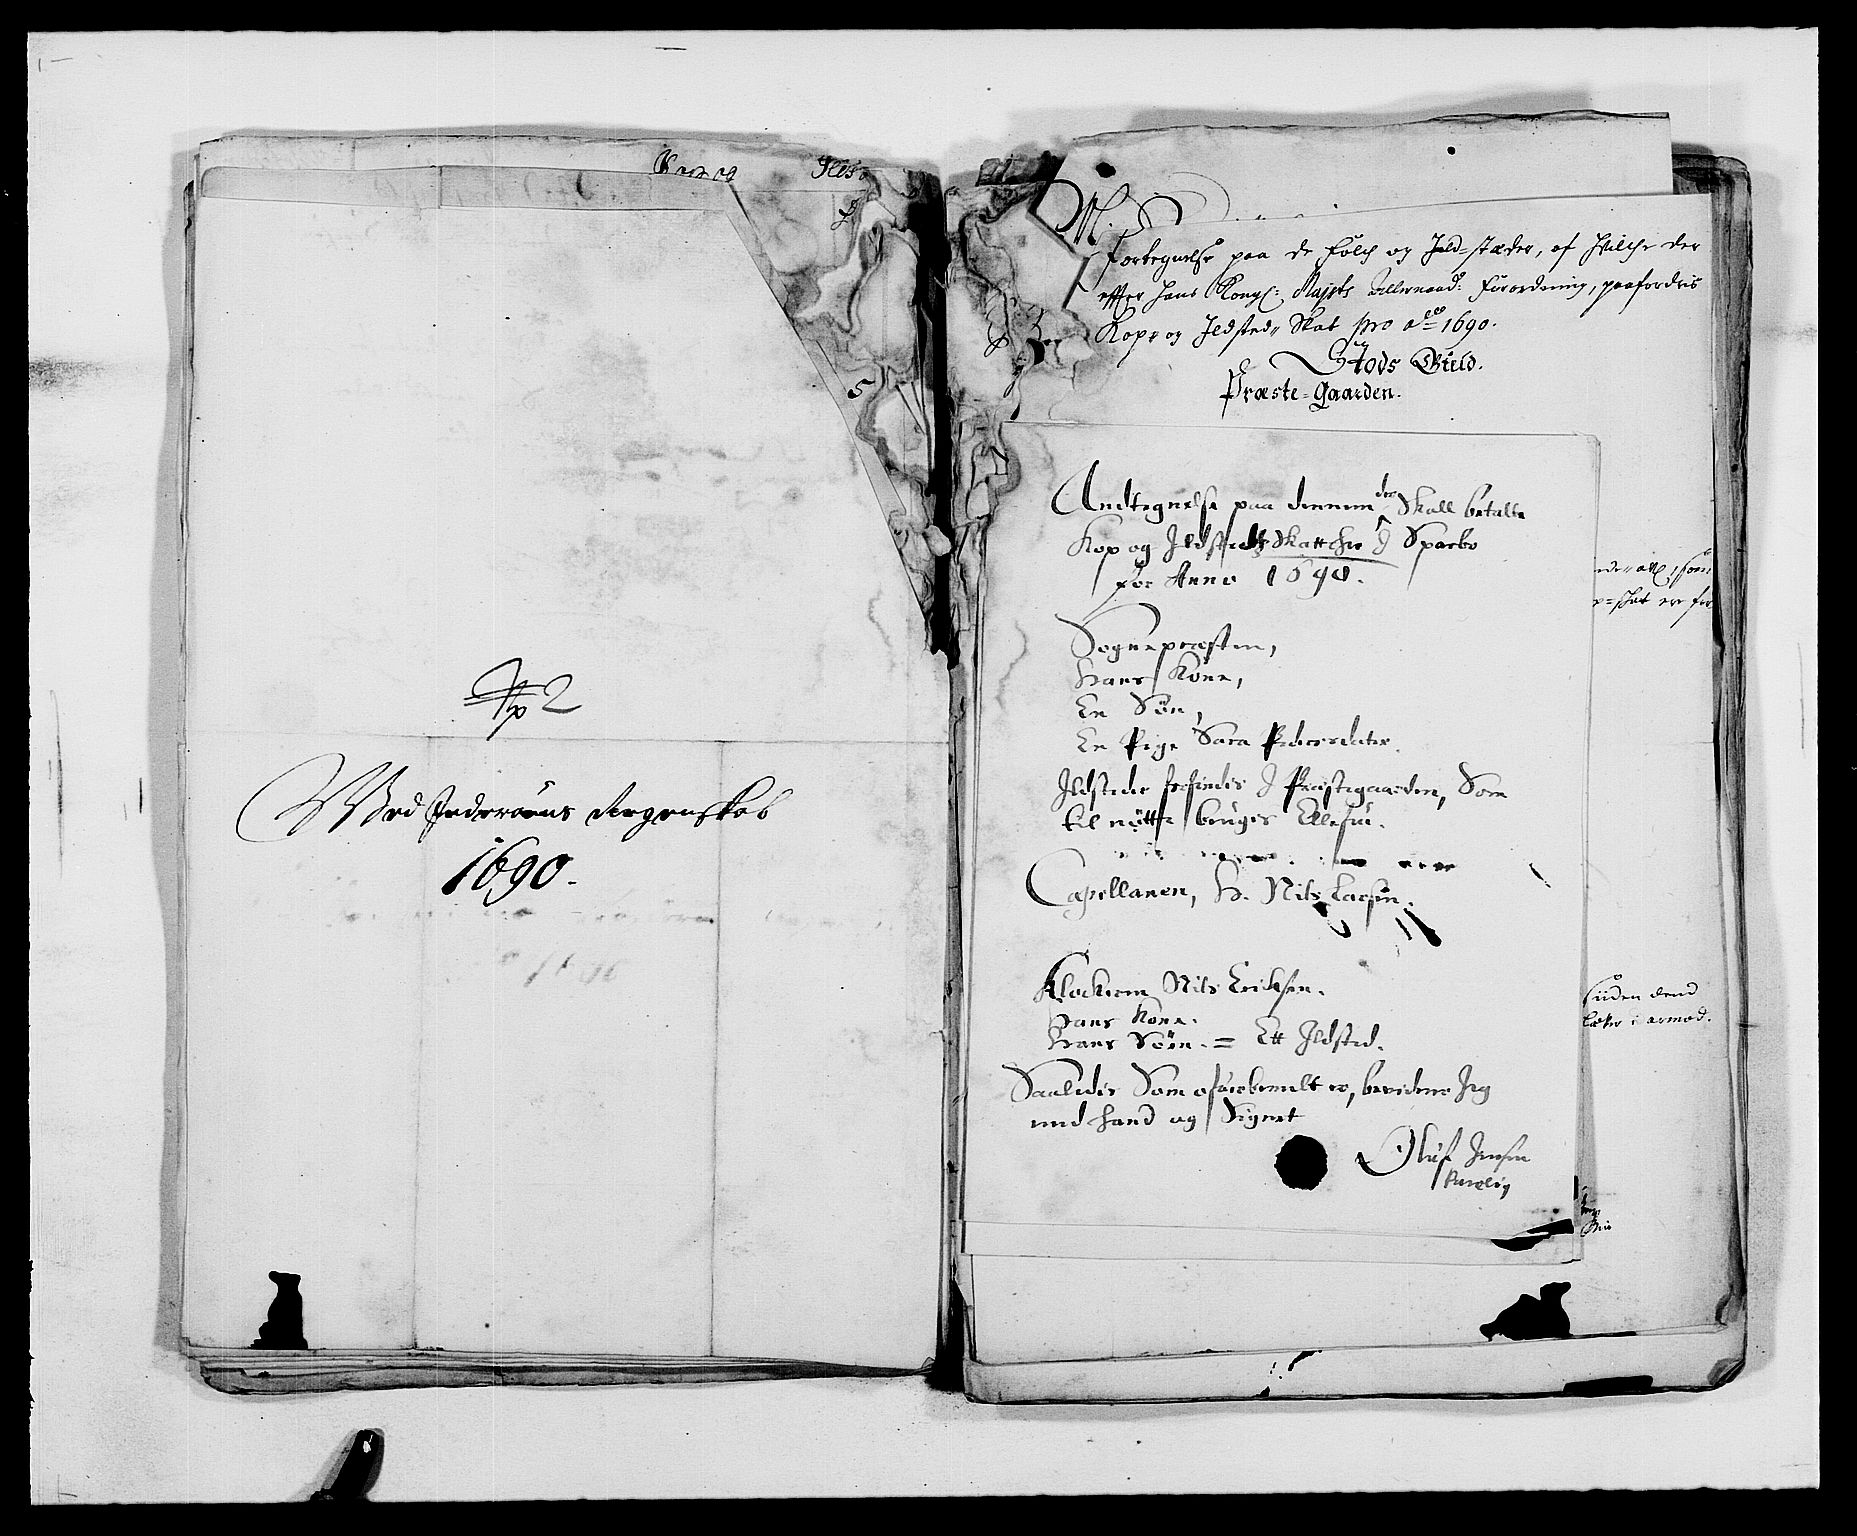 5
No 2
Wed Inderøens Regenskab
1690.
N.
Fortegnelse paa de Folch og Jld-stæder, af Hvilche der
effter Hans Kongl: Majsts Allernaad: Forordning, paafordris
Kop- og Jldsted- Skat pro ao 1690.
Stods Gield.
Præste-Gaarden.
Andtegnelse paa dennem der Skall betalle
Kop og Jldsteds Skatther J Sparbo
for Anno 1690.
Sognepræsten,
Hans Kone,
En Søn,
En Pige Sara Pedersdater.
Jldsteder befindis J Præstegaarden, Som
til nøtte bruges Ellefue.
Capellanen, H. Nils Larsen.
Klockeren Nils Eriksen.
Hans Kone.
Hans Søn. = Ett Jldsted.
Saaledis Som ofverbemelt er, bevidner Jeg
med Hand og Signet
Oluf Jensen
siden dend
armod.